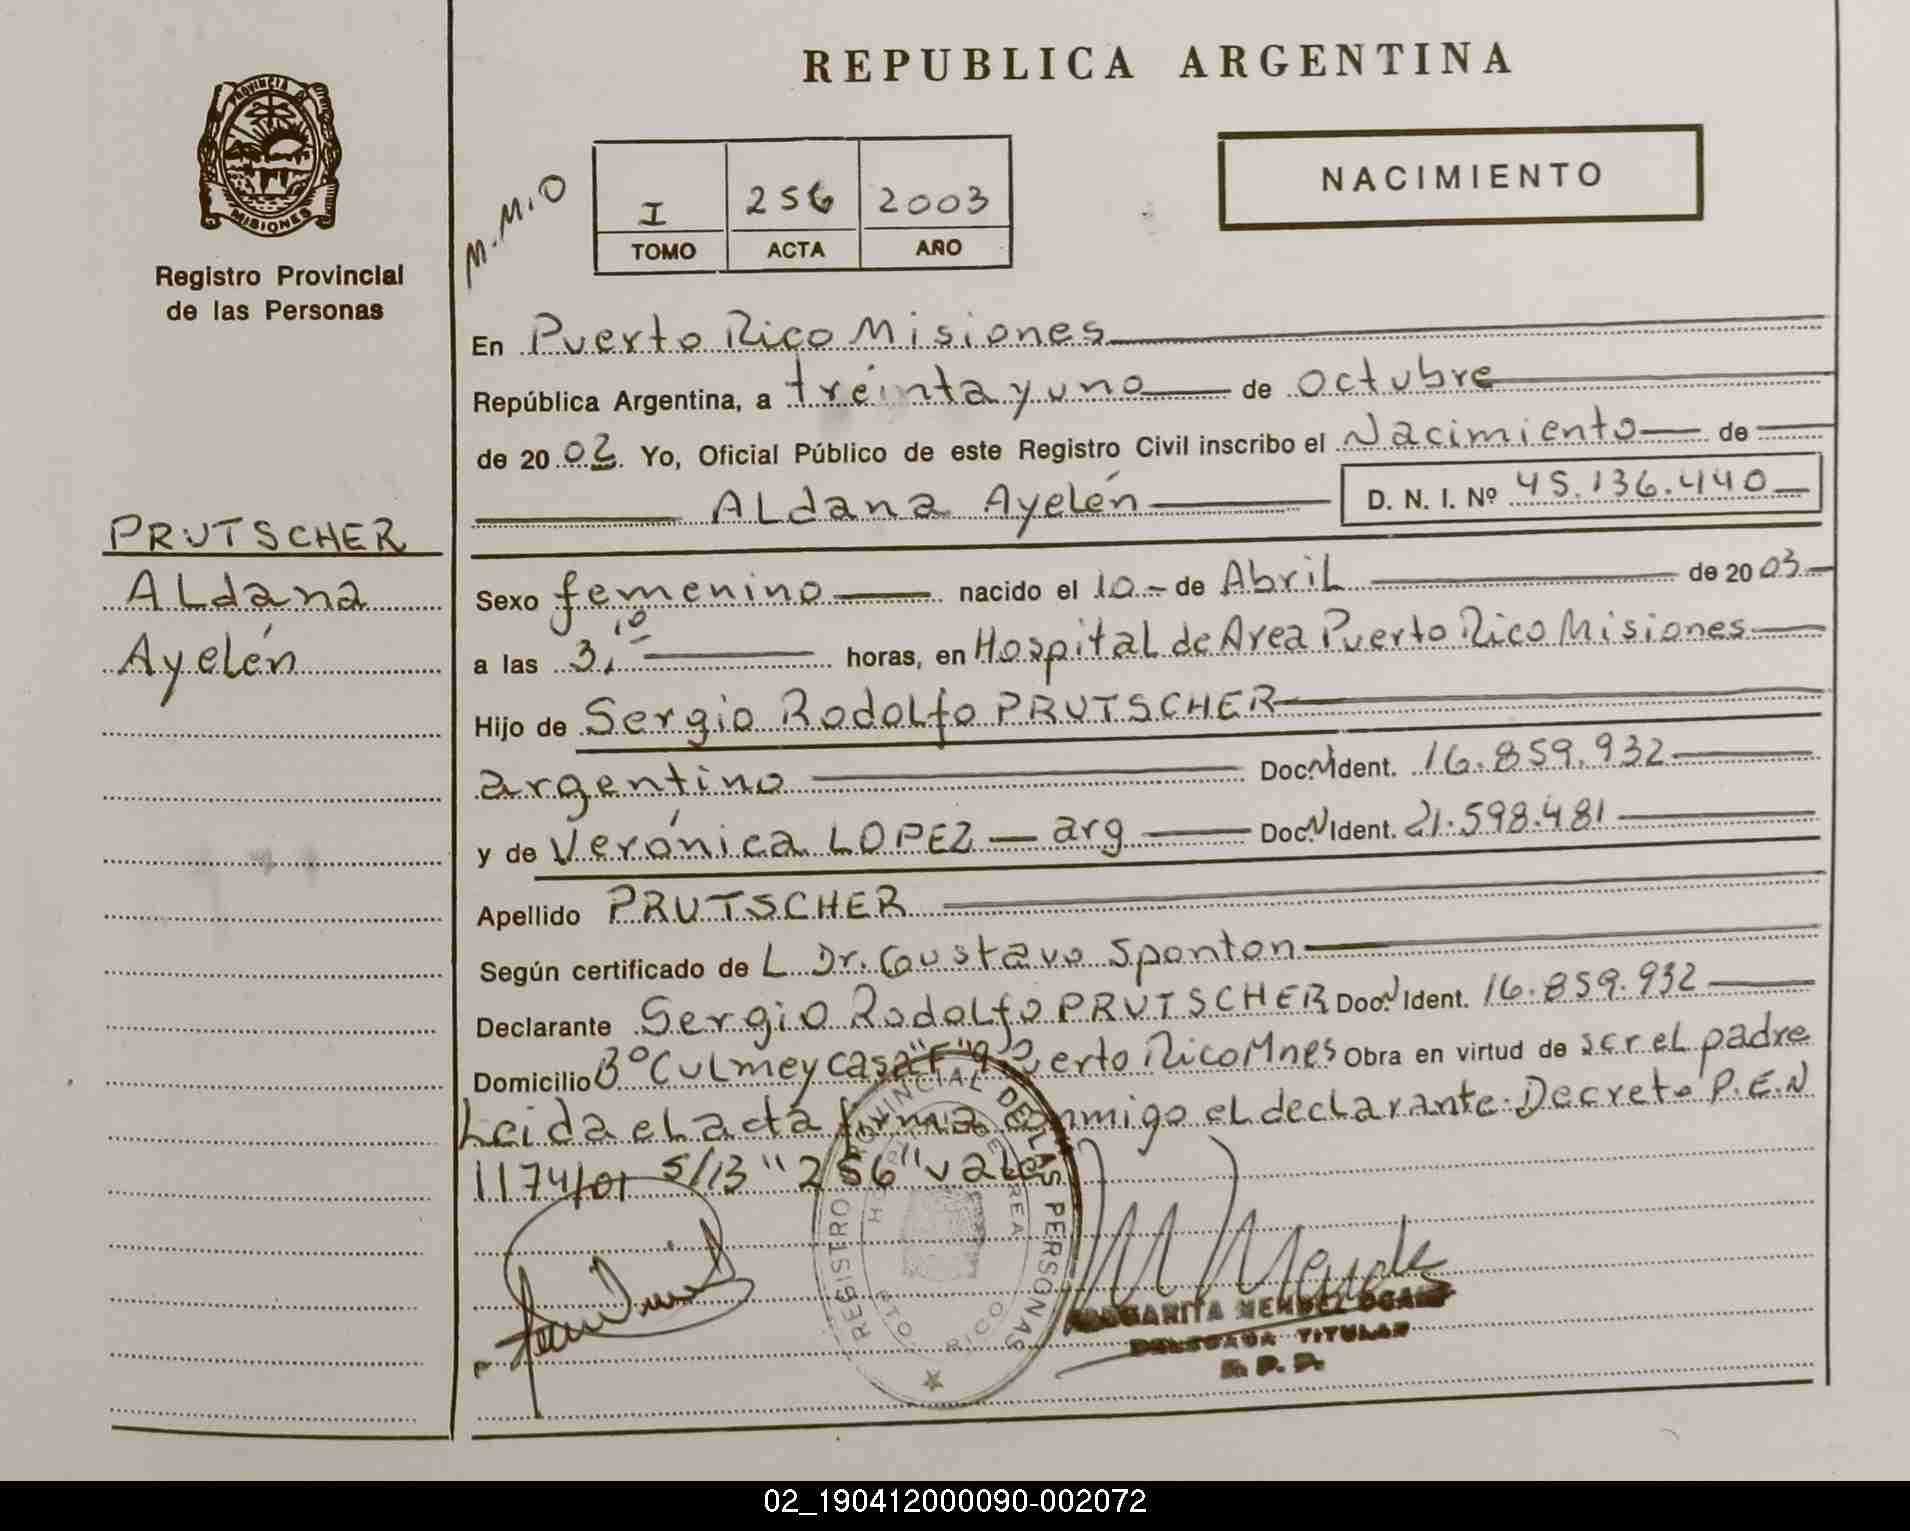 REPUBLICA ARGENTINA
PROVINCIA D MISIONES
Registro Provincial
de las Personas
M.M.O
I 256 2003
TOMO ACTA AÑO
NACIMIENTO
En Puerto Rico Misiones
República Argentina, a treinta y uno de octubre
de 20 03. Yo, Oficial Público de este Registro Civil inscribo el Nacimiento de
Aldana Ayelén D. N. I. Nº 45.136.440
PRUTSCHER
Aldana
Ayelén
Sexo femenino nacido el 10 de Abril de 20 03
a las 3,10 horas, en Hospital de Area Puerto Rico Misiones
Hijo de Sergio Rodolfo PRUTSCHER
argentino Doc. N Ident. 16.859.932
y de Verónica LOPEZ arg Doc. N Ident. 21.598.481
Apellido PRUTSCHER
Según certificado de L Dr. Gustavo Sponton
Declarante Sergio Rodolfo PRUTSCHER Doc. N Ident. 16.859.932
Domicilio Bº Culmey casa "F" 9 Puerto Rico Mnes Obra en virtud de ser el padre
Leida el acta firma conmigo el declarante. Decreto P.E.N
1174/01 S/13 "256" vale
REGISTRO PROVINCIAL DE LAS PERSONAS
PTO. RICO
MARGARITA MENDEZ
DELEGADA TITULAR
02_190412000090-002072